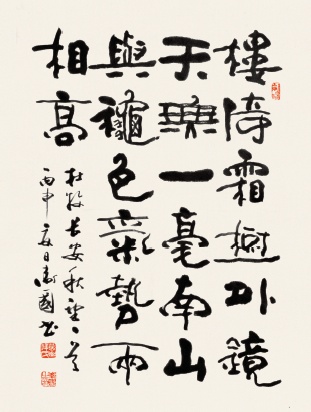 樓倚霜樹外鏡
天無一毫南山
與龝色氣勢兩
相高
杜牧長安秋望一首
丙申夏日國書